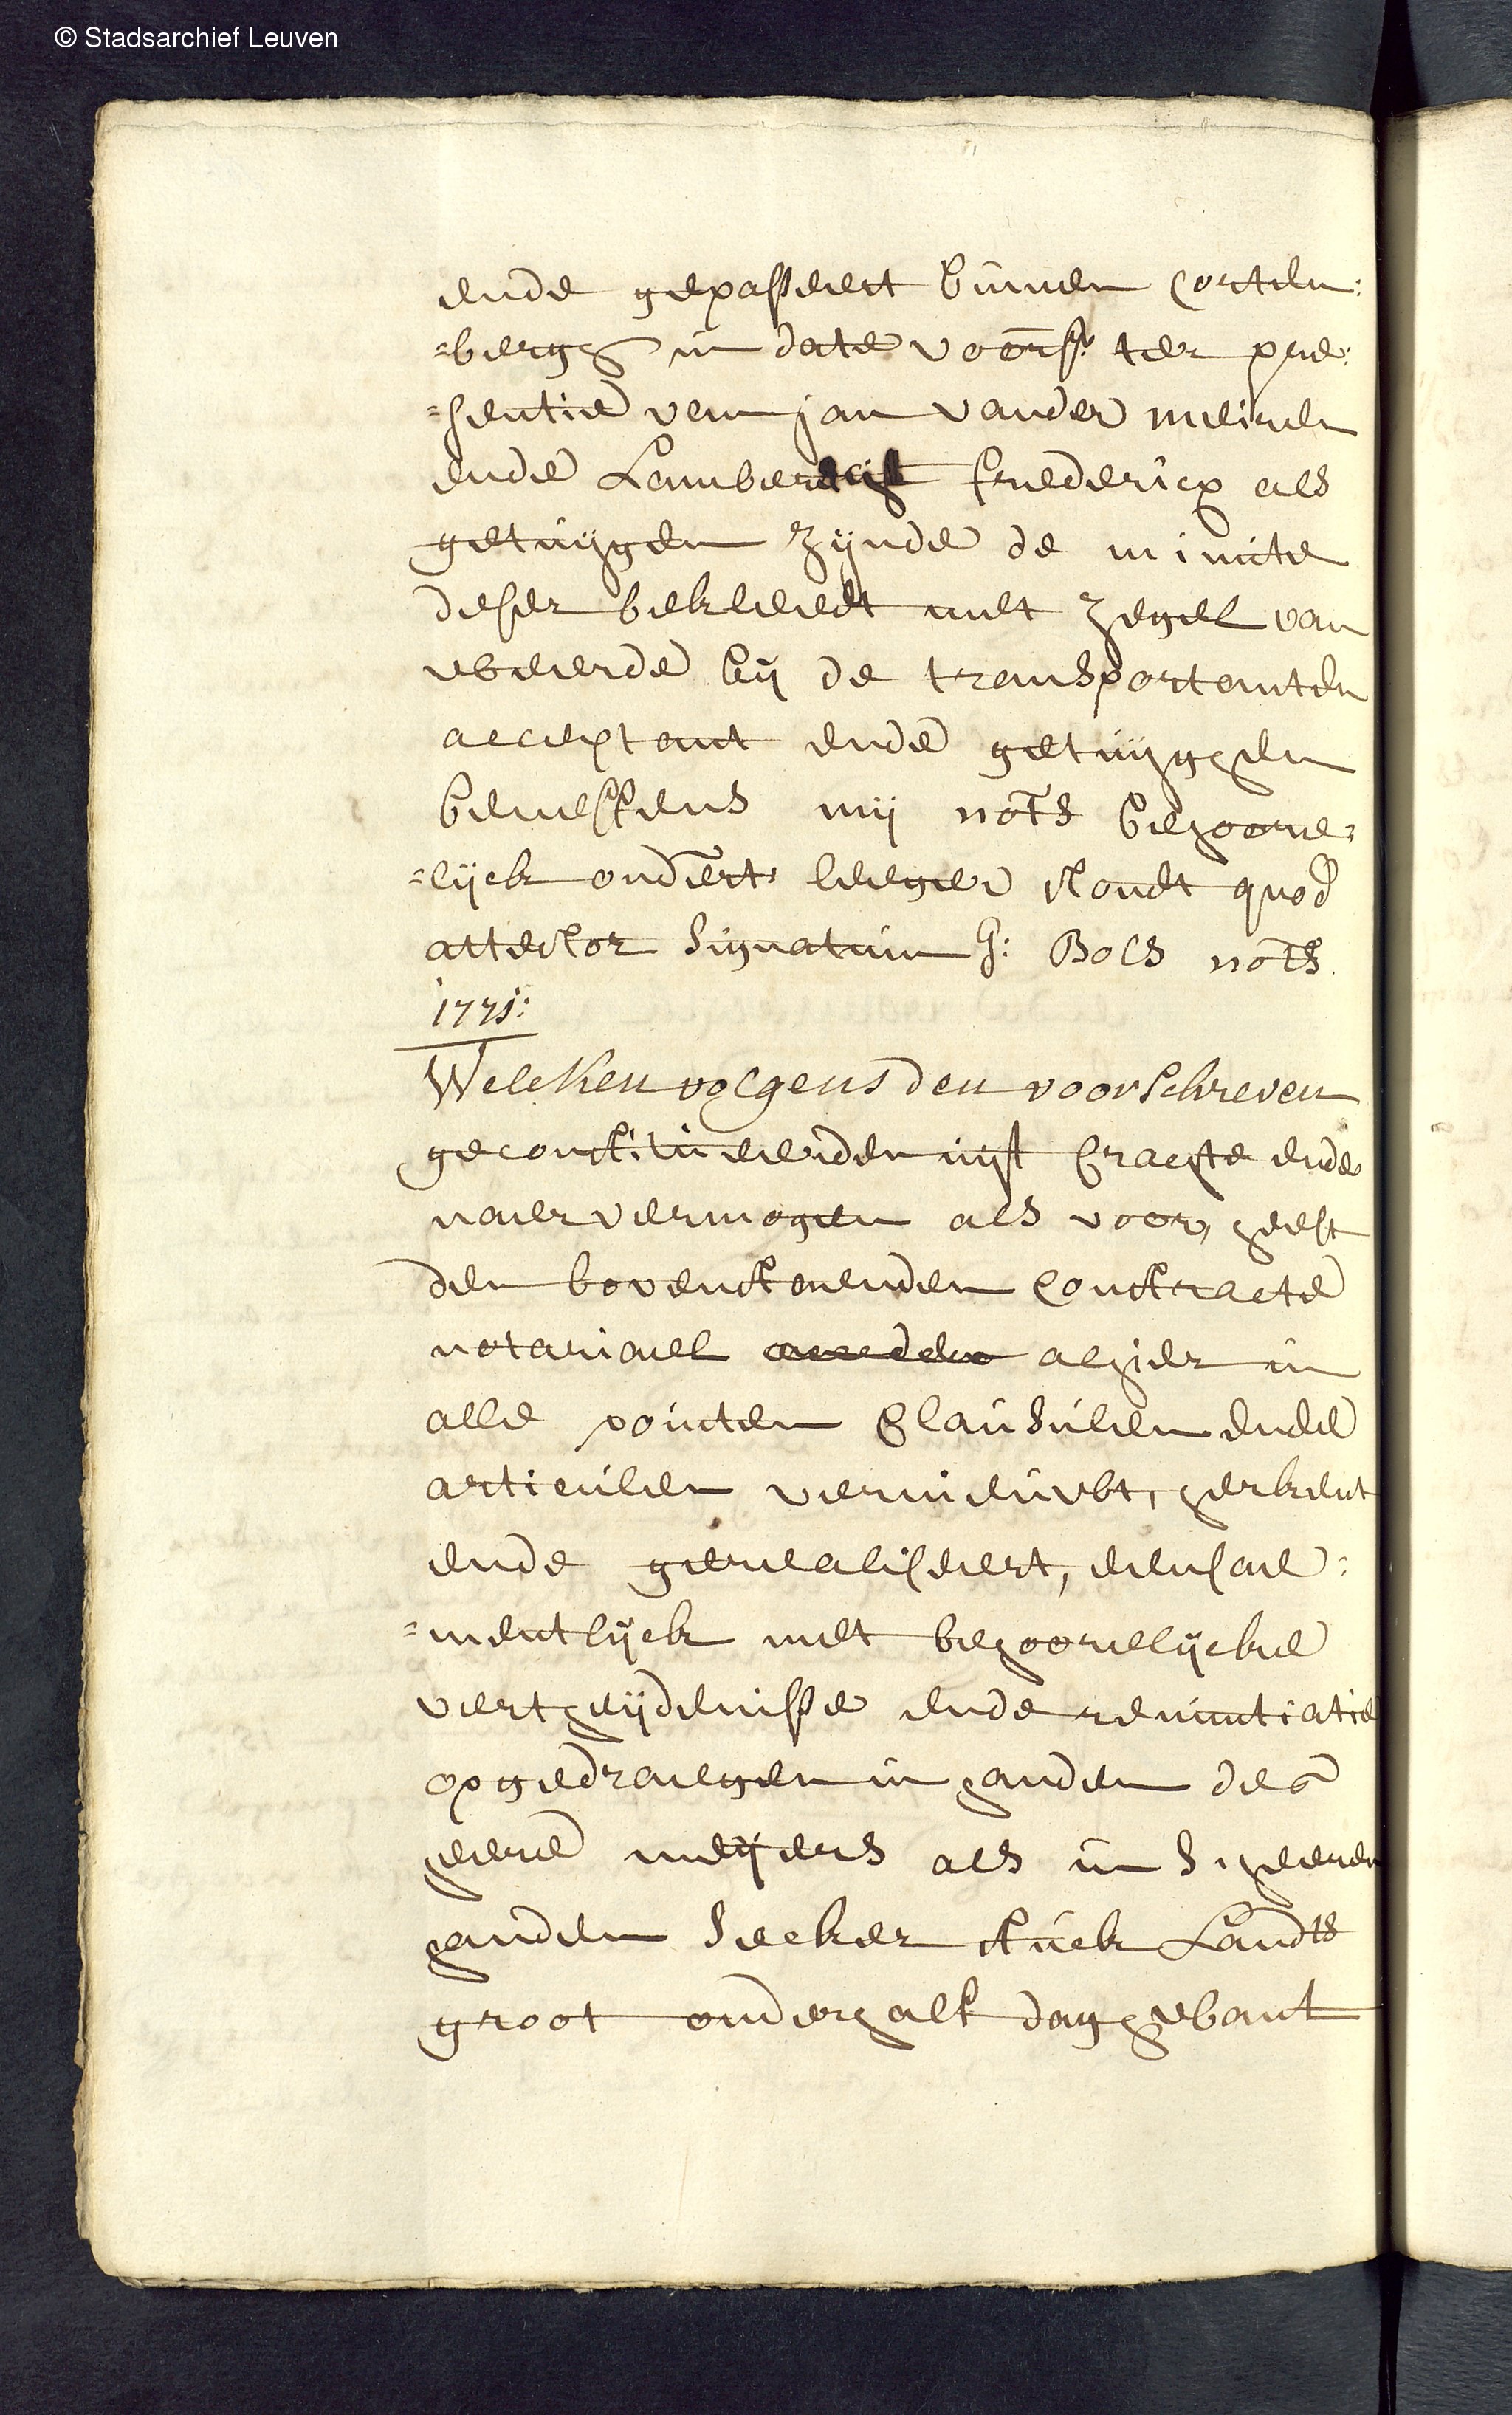 © Stadsarchief Leuven
ende gepasseert binnen Corten:
=bergh in date voors. ter pre:
=sentie van jan vander meiren
ende Lamberts frederiex als
getuijgen zijnde de minute
deser bekleedt met zegel van
weerde bij de transportanten
acceptant ende getuijghen
beneffens mij nots behoore=
=lijck ondert leeger stondt quod
attestor signatum G: Bols nots
1771:
Welcken volgens den voorschreven
geconstitueerden uijt crachte ende
naer vermogen als voor, heeft
den bovenstaenden contracte
notariael alhier in
alle pointen clausulen ende
articulen vernieuwt, herkent
ende gerealiseert, eensae:
=mentlijck met behoorelijcke
verthijdenisse ende renuntiatie
opgedraegen in handen des
heere meijers als in s'heeren
handen seeker stuck Landts
groot onderhalf daghwant